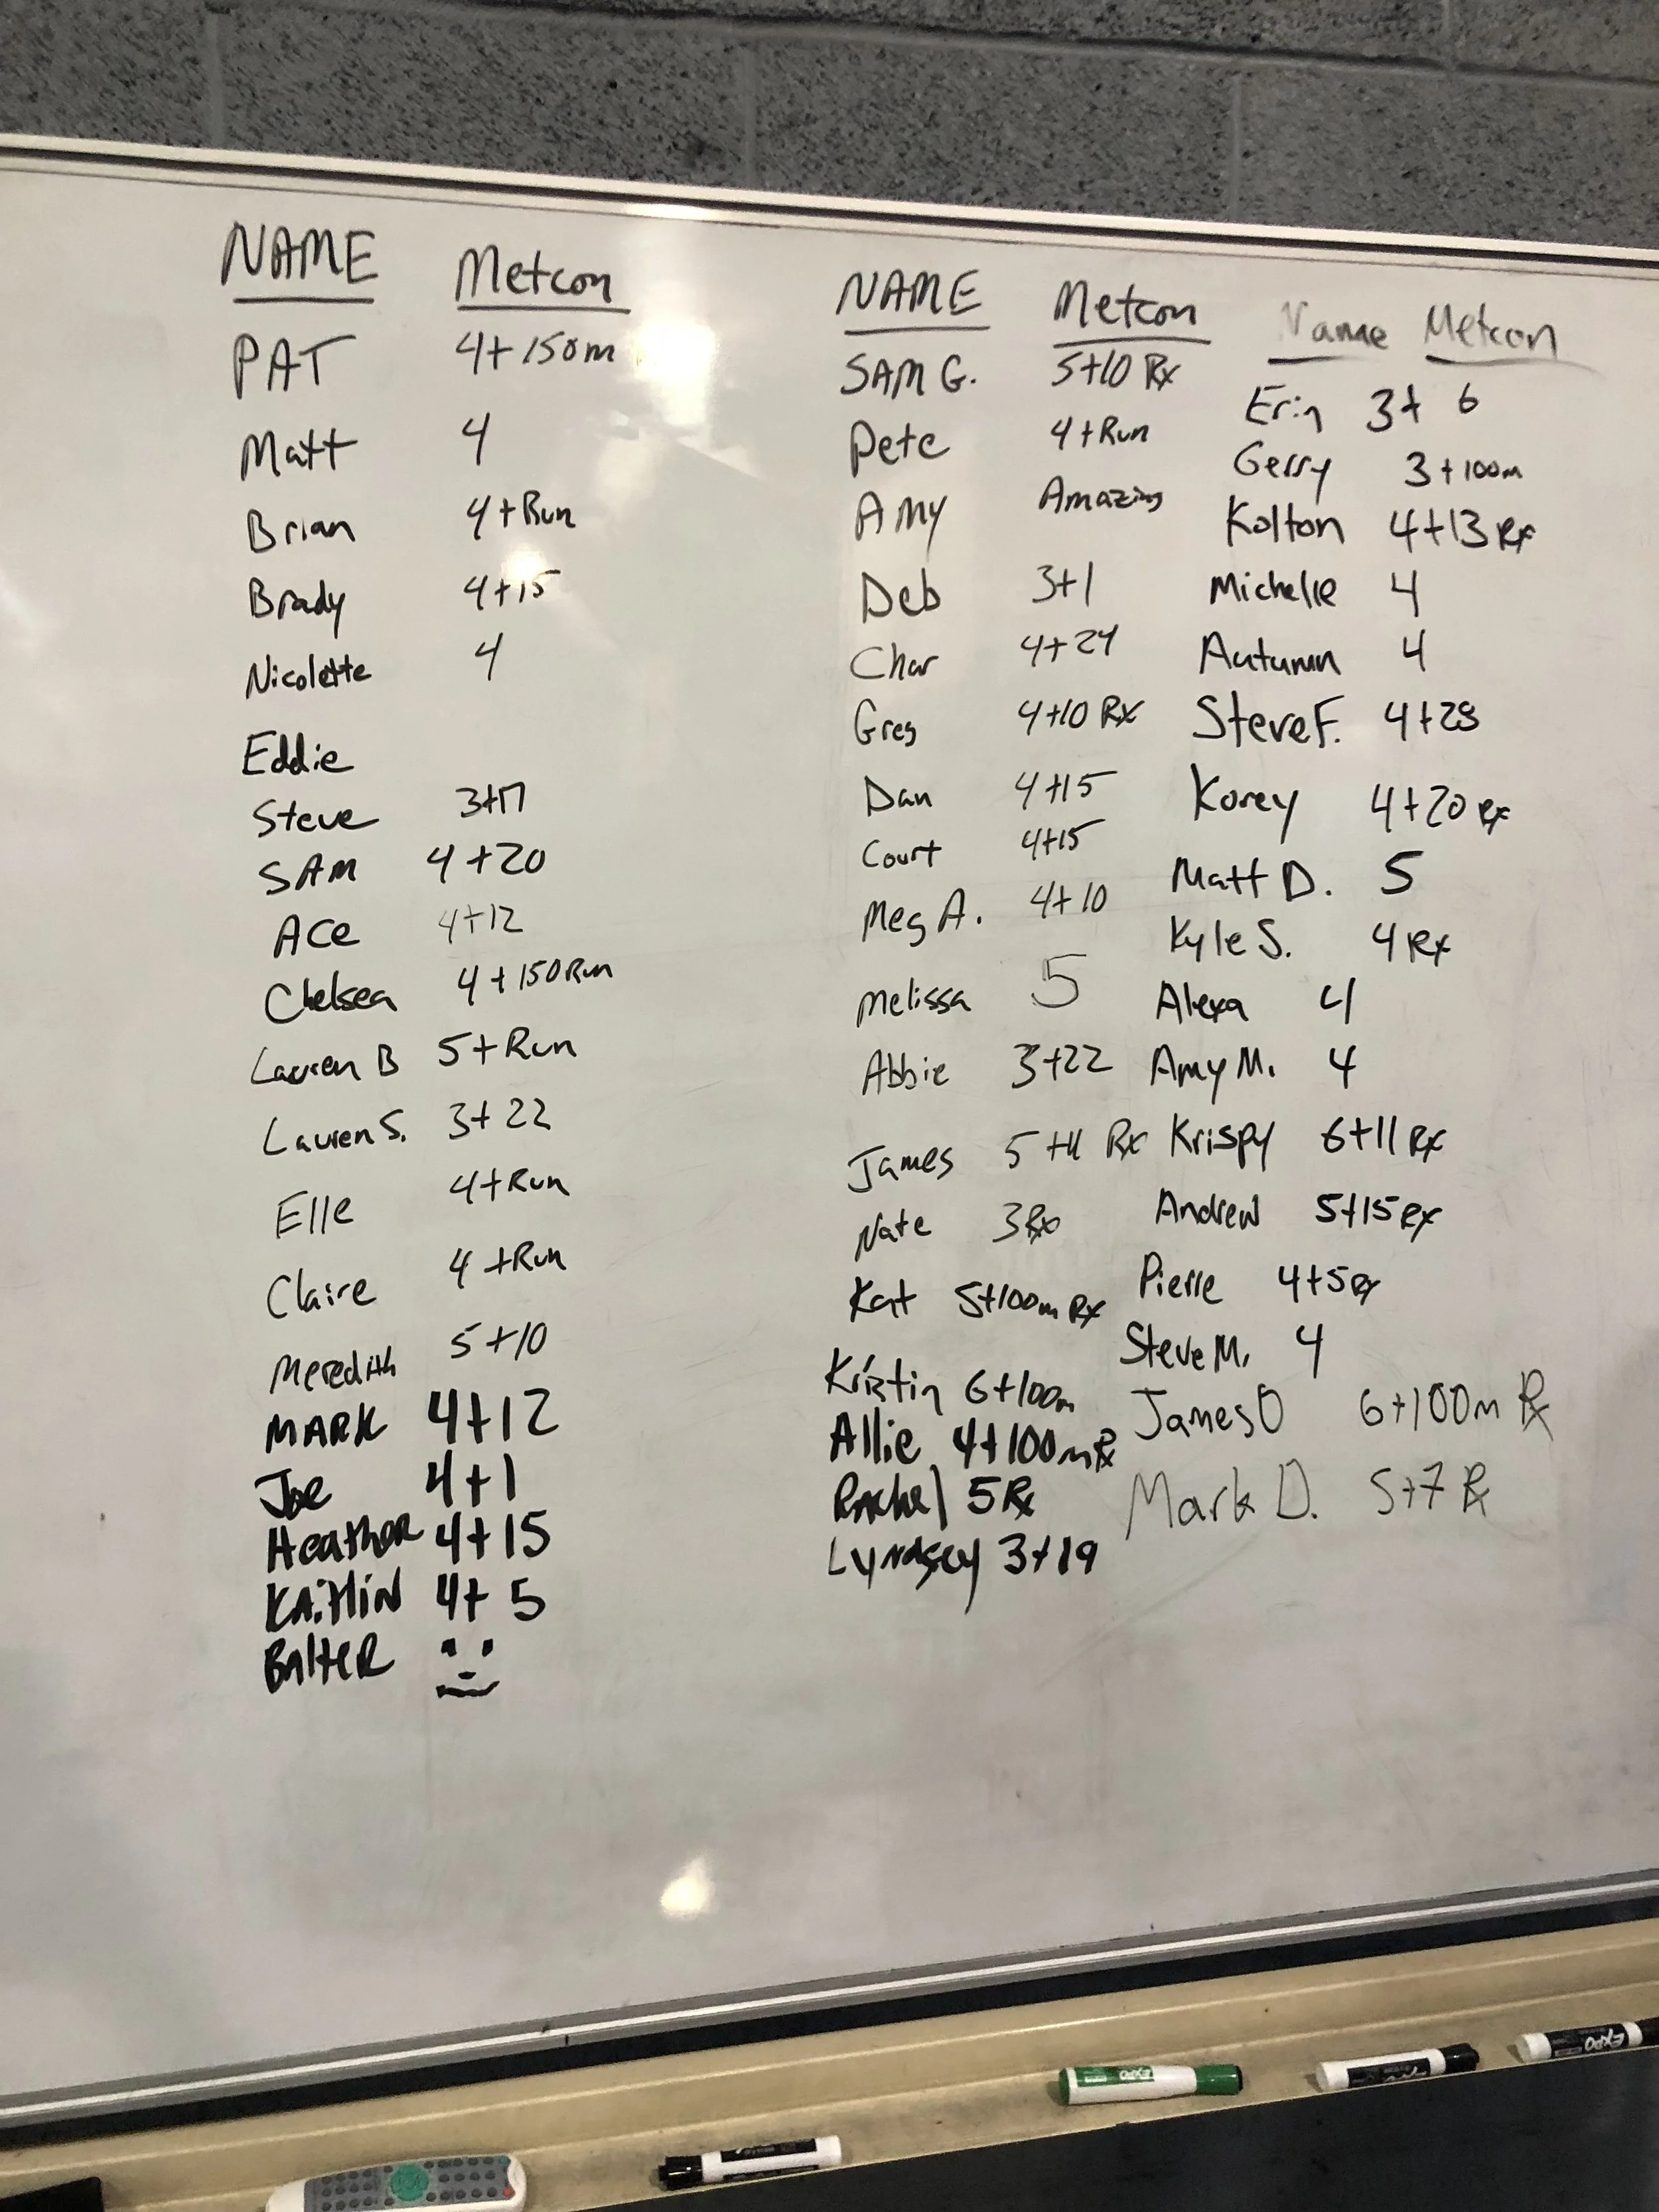 NAME Metcon
PAT 4+150m
Matt 4
Brian 4+Run
Brady 4+15
Nicolette 4
Eddie
Steve 3+17
SAM 4+20
ACe 4+12
Chelsea 4+150Run
Lauren B 5+Run
Lauren S. 3+22
Elle 4+Run
Claire 4+Run
Meredith 5+10
MARK 4+12
Joe 4+1
Heather 4+15
KAitliN 4+5
BAlteR
NAME Metcon
SAM G. 5+10 Rx
Pete 4+Run
AMY Amazing
Deb 3+1
Char 4+24
Greg 4+10 Rx
Dan 4+15
Court 4+15
Meg A. 4+10
Melissa 5
Abbie 3+22
James Rx
Nate 3Rx
Kat 5+100m Rx
Kristin 6+100m
Allie 4+100m Rx
Rachel 5Rx
Lyndsey 3+19
Name Metcon
Erin 3+ 6
Gerry 3+100m
Kolton 4+13 Rx
Michelle 4
Autumn 4
Steve F. 4+28
Korey 4+20 Rx
Matt D. 5
Kyle S. 4 Rx
Alexa 4
Amy M. 4
Krispy 6+11 Rx
Andrew 5+15 Rx
Pierre 4+5 Rx
Steve M. 4
James O 6+100m Rx
Mark D. 5+7 Rx
EXPO
EXPO